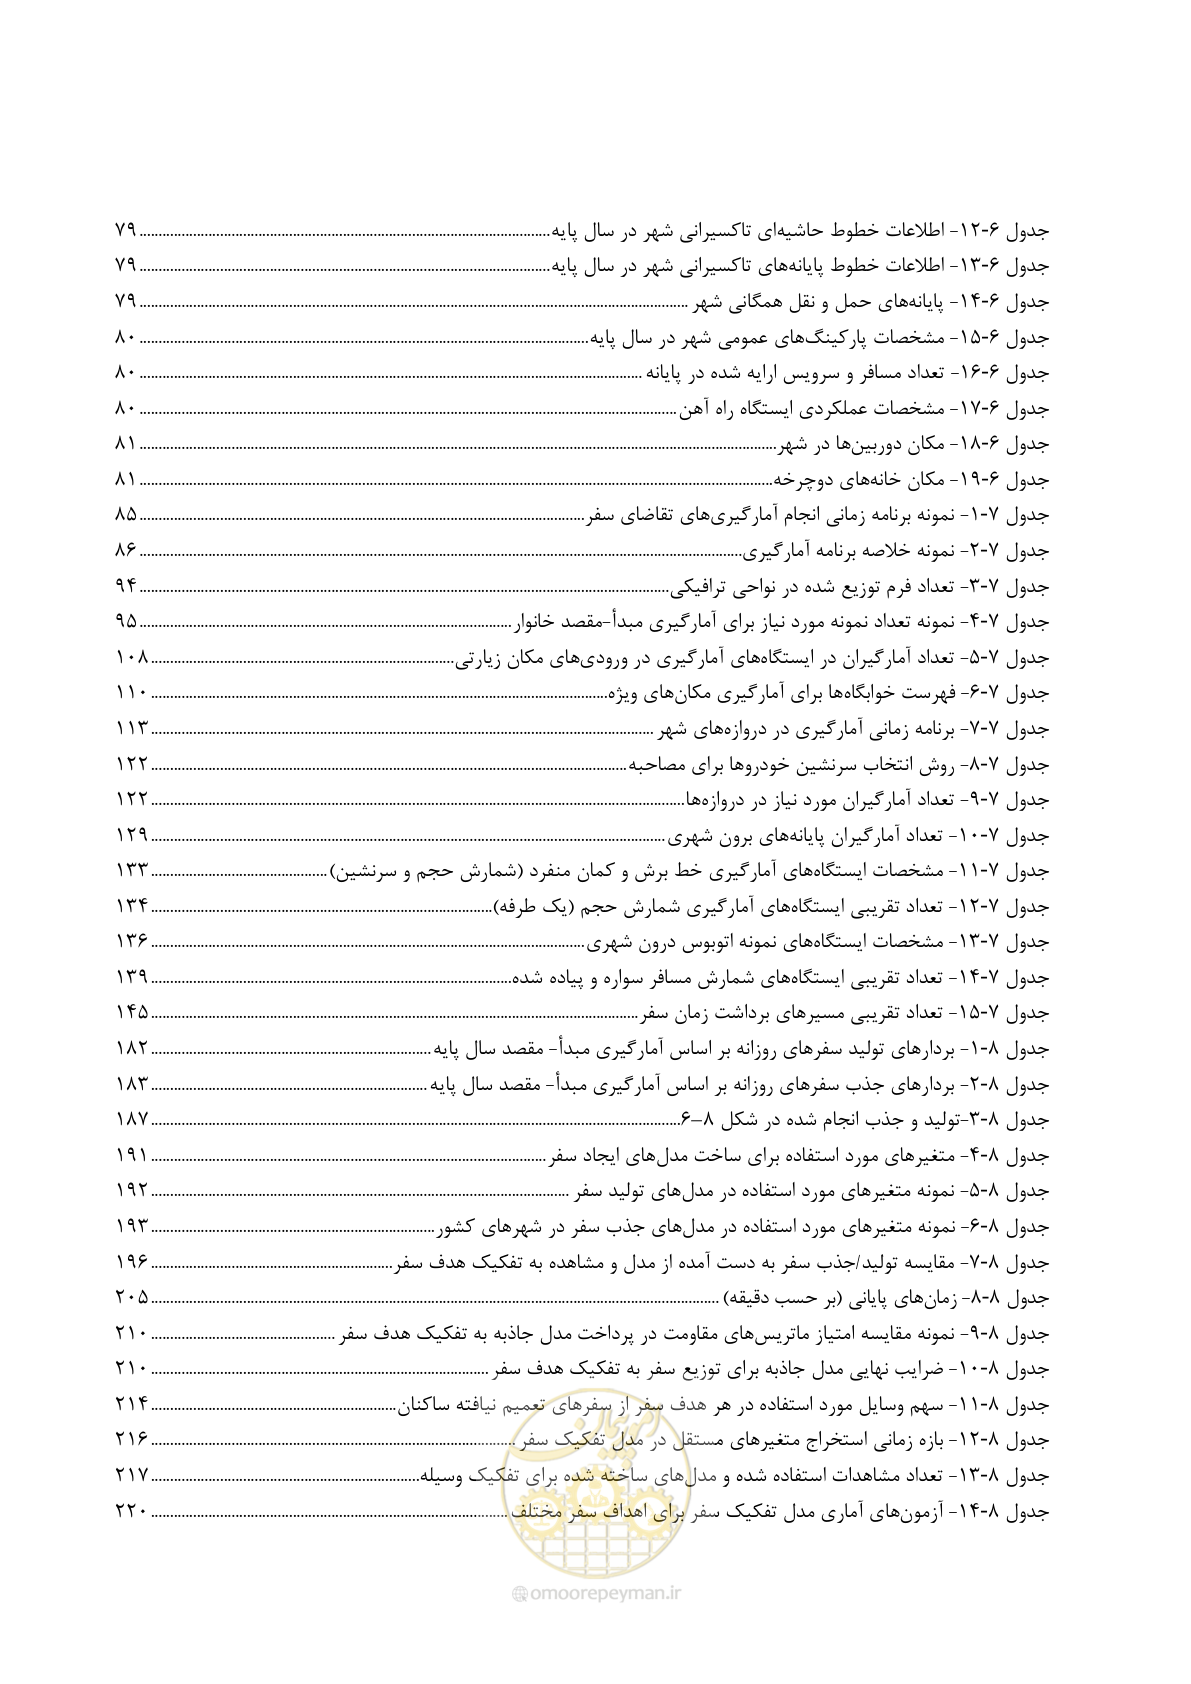 جدول ۶-۱۲- اطلاعات خطوط حاشیه‌ای تاکسیرانی شهر در سال پایه ........ ۷۹
جدول ۶-۱۳- اطلاعات خطوط پایانه‌های تاکسیرانی شهر در سال پایه ........ ۷۹
جدول ۶-۱۴- پایانه‌های حمل و نقل همگانی شهر ........ ۷۹
جدول ۶-۱۵- مشخصات پارکینگ‌های عمومی شهر در سال پایه ........ ۸۰
جدول ۶-۱۶- تعداد مسافر و سرویس ارایه شده در پایانه ........ ۸۰
جدول ۶-۱۷- مشخصات عملکردی ایستگاه راه آهن ........ ۸۰
جدول ۶-۱۸- مکان دوربین‌ها در شهر ........ ۸۱
جدول ۶-۱۹- مکان خانه‌های دوچرخه ........ ۸۱
جدول ۷-۱- نمونه برنامه زمانی انجام آمارگیری‌های تقاضای سفر ........ ۸۵
جدول ۷-۲- نمونه خلاصه برنامه آمارگیری ........ ۸۶
جدول ۷-۳- تعداد فرم توزیع شده در نواحی ترافیکی ........ ۹۴
جدول ۷-۴- نمونه تعداد نمونه مورد نیاز برای آمارگیری مبدأ-مقصد خانوار ........ ۹۵
جدول ۷-۵- تعداد آمارگیران در ایستگاه‌های آمارگیری در ورودی‌های مکان زیارتی ........ ۱۰۸
جدول ۷-۶- فهرست خوابگاه‌ها برای آمارگیری مکان‌های ویژه ........ ۱۱۰
جدول ۷-۷- برنامه زمانی آمارگیری در دروازه‌های شهر ........ ۱۱۳
جدول ۷-۸- روش انتخاب سرنشین خودروها برای مصاحبه ........ ۱۲۲
جدول ۷-۹- تعداد آمارگیران مورد نیاز در دروازه‌ها ........ ۱۲۲
جدول ۷-۱۰- تعداد آمارگیران پایانه‌های برون شهری ........ ۱۲۹
جدول ۷-۱۱- مشخصات ایستگاه‌های آمارگیری خط برش و کمان منفرد (شمارش حجم و سرنشین) ........ ۱۳۳
جدول ۷-۱۲- تعداد تقریبی ایستگاه‌های آمارگیری شمارش حجم (یک طرفه) ........ ۱۳۴
جدول ۷-۱۳- مشخصات ایستگاه‌های نمونه اتوبوس درون شهری ........ ۱۳۶
جدول ۷-۱۴- تعداد تقریبی ایستگاه‌های شمارش مسافر سواره و پیاده شده ........ ۱۳۹
جدول ۷-۱۵- تعداد تقریبی مسیرهای برداشت زمان سفر ........ ۱۴۵
جدول ۸-۱- بردارهای تولید سفرهای روزانه بر اساس آمارگیری مبدأ- مقصد سال پایه ........ ۱۸۲
جدول ۸-۲- بردارهای جذب سفرهای روزانه بر اساس آمارگیری مبدأ- مقصد سال پایه ........ ۱۸۳
جدول ۸-۳-تولید و جذب انجام شده در شکل ۸–۶ ........ ۱۸۷
جدول ۸-۴- متغیرهای مورد استفاده برای ساخت مدل‌های ایجاد سفر ........ ۱۹۱
جدول ۸-۵- نمونه متغیرهای مورد استفاده در مدل‌های تولید سفر ........ ۱۹۲
جدول ۸-۶- نمونه متغیرهای مورد استفاده در مدل‌های جذب سفر در شهرهای کشور ........ ۱۹۳
جدول ۸-۷- مقایسه تولید/جذب سفر به دست آمده از مدل و مشاهده به تفکیک هدف سفر ........ ۱۹۶
جدول ۸-۸- زمان‌های پایانی (بر حسب دقیقه) ........ ۲۰۵
جدول ۸-۹- نمونه مقایسه امتیاز ماتریس‌های مقاومت در پرداخت مدل جاذبه به تفکیک هدف سفر ........ ۲۱۰
جدول ۸-۱۰- ضرایب نهایی مدل جاذبه برای توزیع سفر به تفکیک هدف سفر ........ ۲۱۰
جدول ۸-۱۱- سهم وسایل مورد استفاده در هر هدف سفر از سفرهای تعمیم نیافته ساکنان ........ ۲۱۴
جدول ۸-۱۲- بازه زمانی استخراج متغیرهای مستقل در مدل تفکیک سفر ........ ۲۱۶
جدول ۸-۱۳- تعداد مشاهدات استفاده شده و مدل‌های ساخته شده برای تفکیک وسیله ........ ۲۱۷
جدول ۸-۱۴- آزمون‌های آماری مدل تفکیک سفر برای اهداف سفر مختلف ........ ۲۲۰
امور پیمان
@omoorepeyman.ir